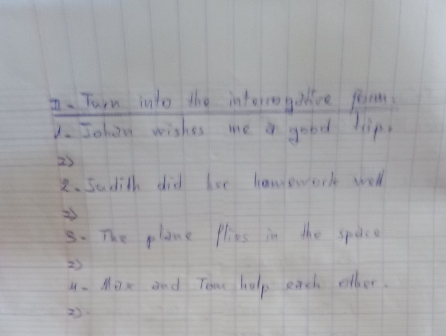 II - Turn into the interrogative form:
1 - Johan wishes me a good trip.
=)
2 - Judith did her homework well
=)
3 - The plane flies in the space
=)
4 - Max and Tom help each other.
=)